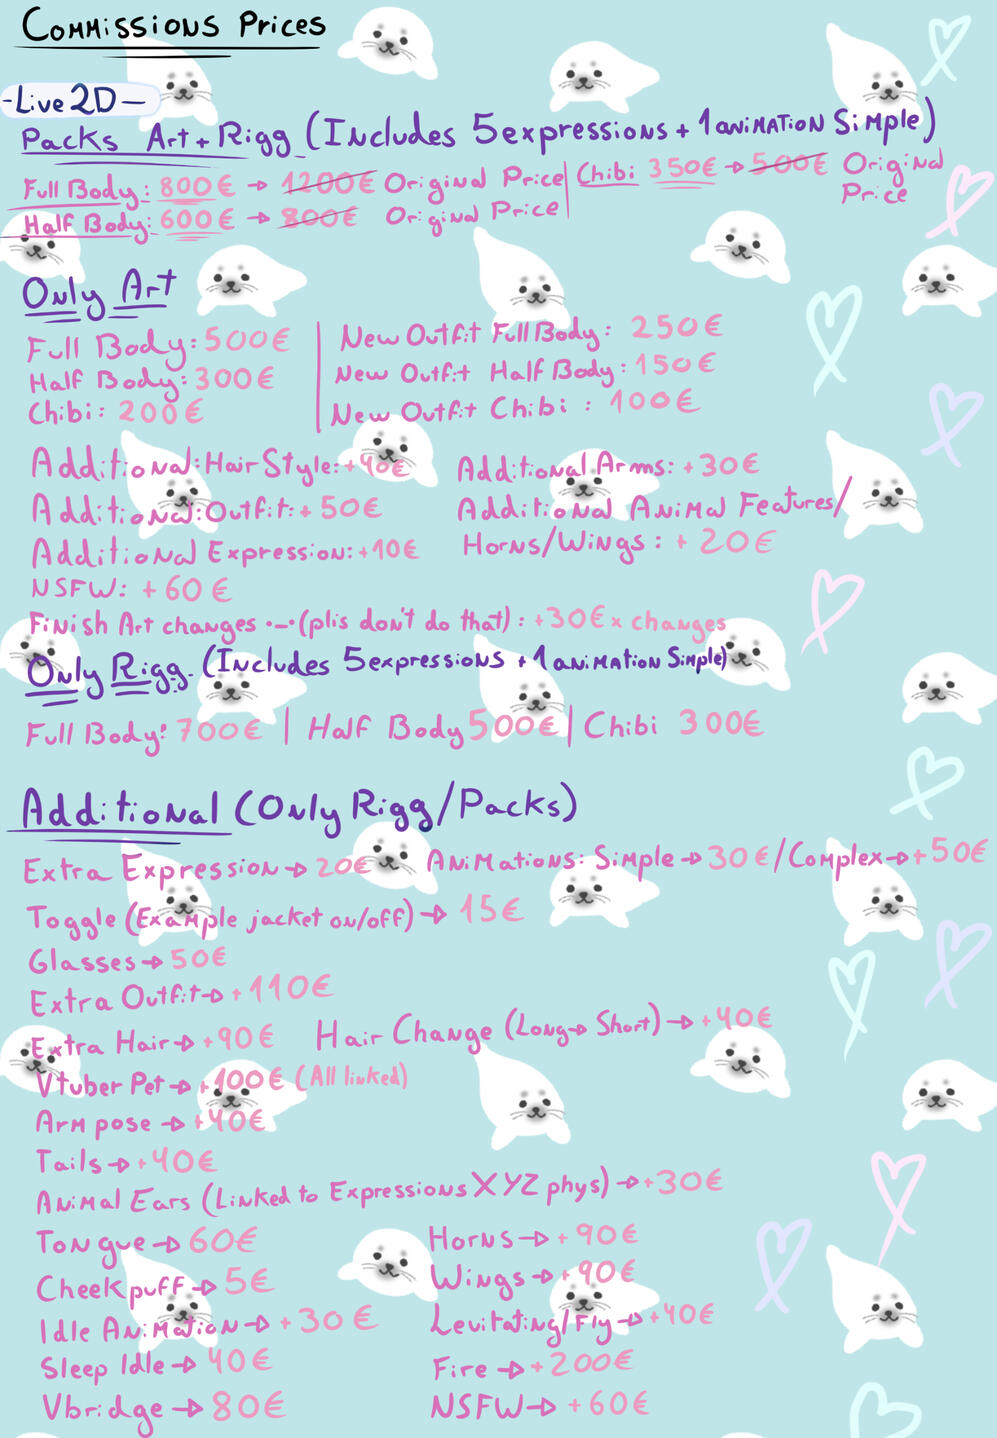 Commissions Prices
-Live2D-
Packs Art + Rigg (Includes 5 expressions + 1 animation Simple)
Full Body: 800€ → 1200€ Original Price | Chibi 350€ → 500€ Original Price
Half Body: 600€ → 800€ Original Price
Only Art
Full Body: 500€ | New Outfit Full Body: 250€
Half Body: 300€ | New Outfit Half Body: 150€
Chibi: 200€ | New Outfit Chibi: 100€
Additional: Hair Style: +40€
Additional Arms: +30€
Additional: Outfit: + 50€
Additional Animal Features/
Horns/Wings: + 20€
Additional Expression: +10€
NSFW: +60€
Finish Art changes ._. (plis don't do that): +30€ x changes
Only Rigg (Includes 5 expressions + 1 animation Simple)
Full Body: 700€ | Half Body 500€ | Chibi 300€
Additional (Only Rigg/Packs)
Extra Expression → 20€ Animations: Simple → 30€/Complex → +50€
Toggle (Example jacket on/off) → 15€
Glasses → 50€
Extra Outfit → +110€
Extra Hair → +90€ Hair Change (Long → Short) → +40€
Vtuber Pet → +100€ (All linked)
Arm pose → +40€
Tails → +40€
Animal Ears (Linked to Expressions XYZ phys) → +30€
Tongue → 60€ Horns → +90€
Cheek puff → 5€ Wings → +90€
Idle Animation → +30€ Levitating/Fly → +40€
Sleep Idle → 40€ Fire → +200€
Vbridge → 80€ NSFW → +60€